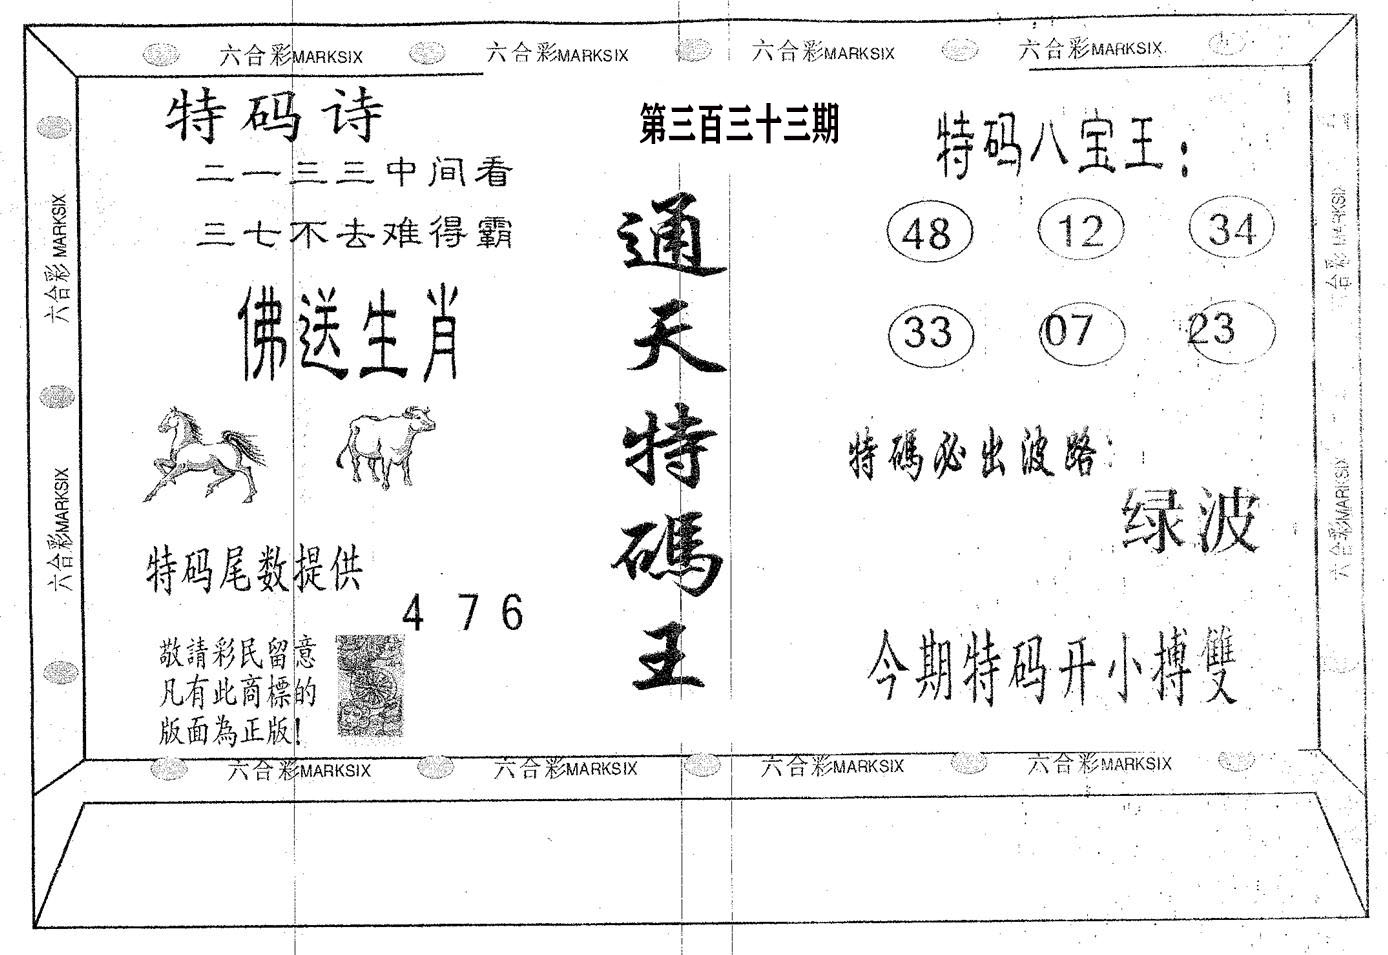 六合彩MARKSIX 六合彩MARKSIX 六合彩MARKSIX 六合彩MARKSIX
特码诗
二一三三中间看
三七不去难得霸
佛送生肖
特码尾数提供
4 7 6
敬請彩民留意
凡有此商標的
版面為正版!
第三百三十三期
通天特碼王
特码八宝王:
48 12 34
33 07 23
特碼必出波路:
绿波
今期特码开小搏雙
六合彩MARKSIX
六合彩MARKSIX
六合彩MARKSIX
六合彩MARKSIX
六合彩MARKSIX 六合彩MARKSIX 六合彩MARKSIX 六合彩MARKSIX